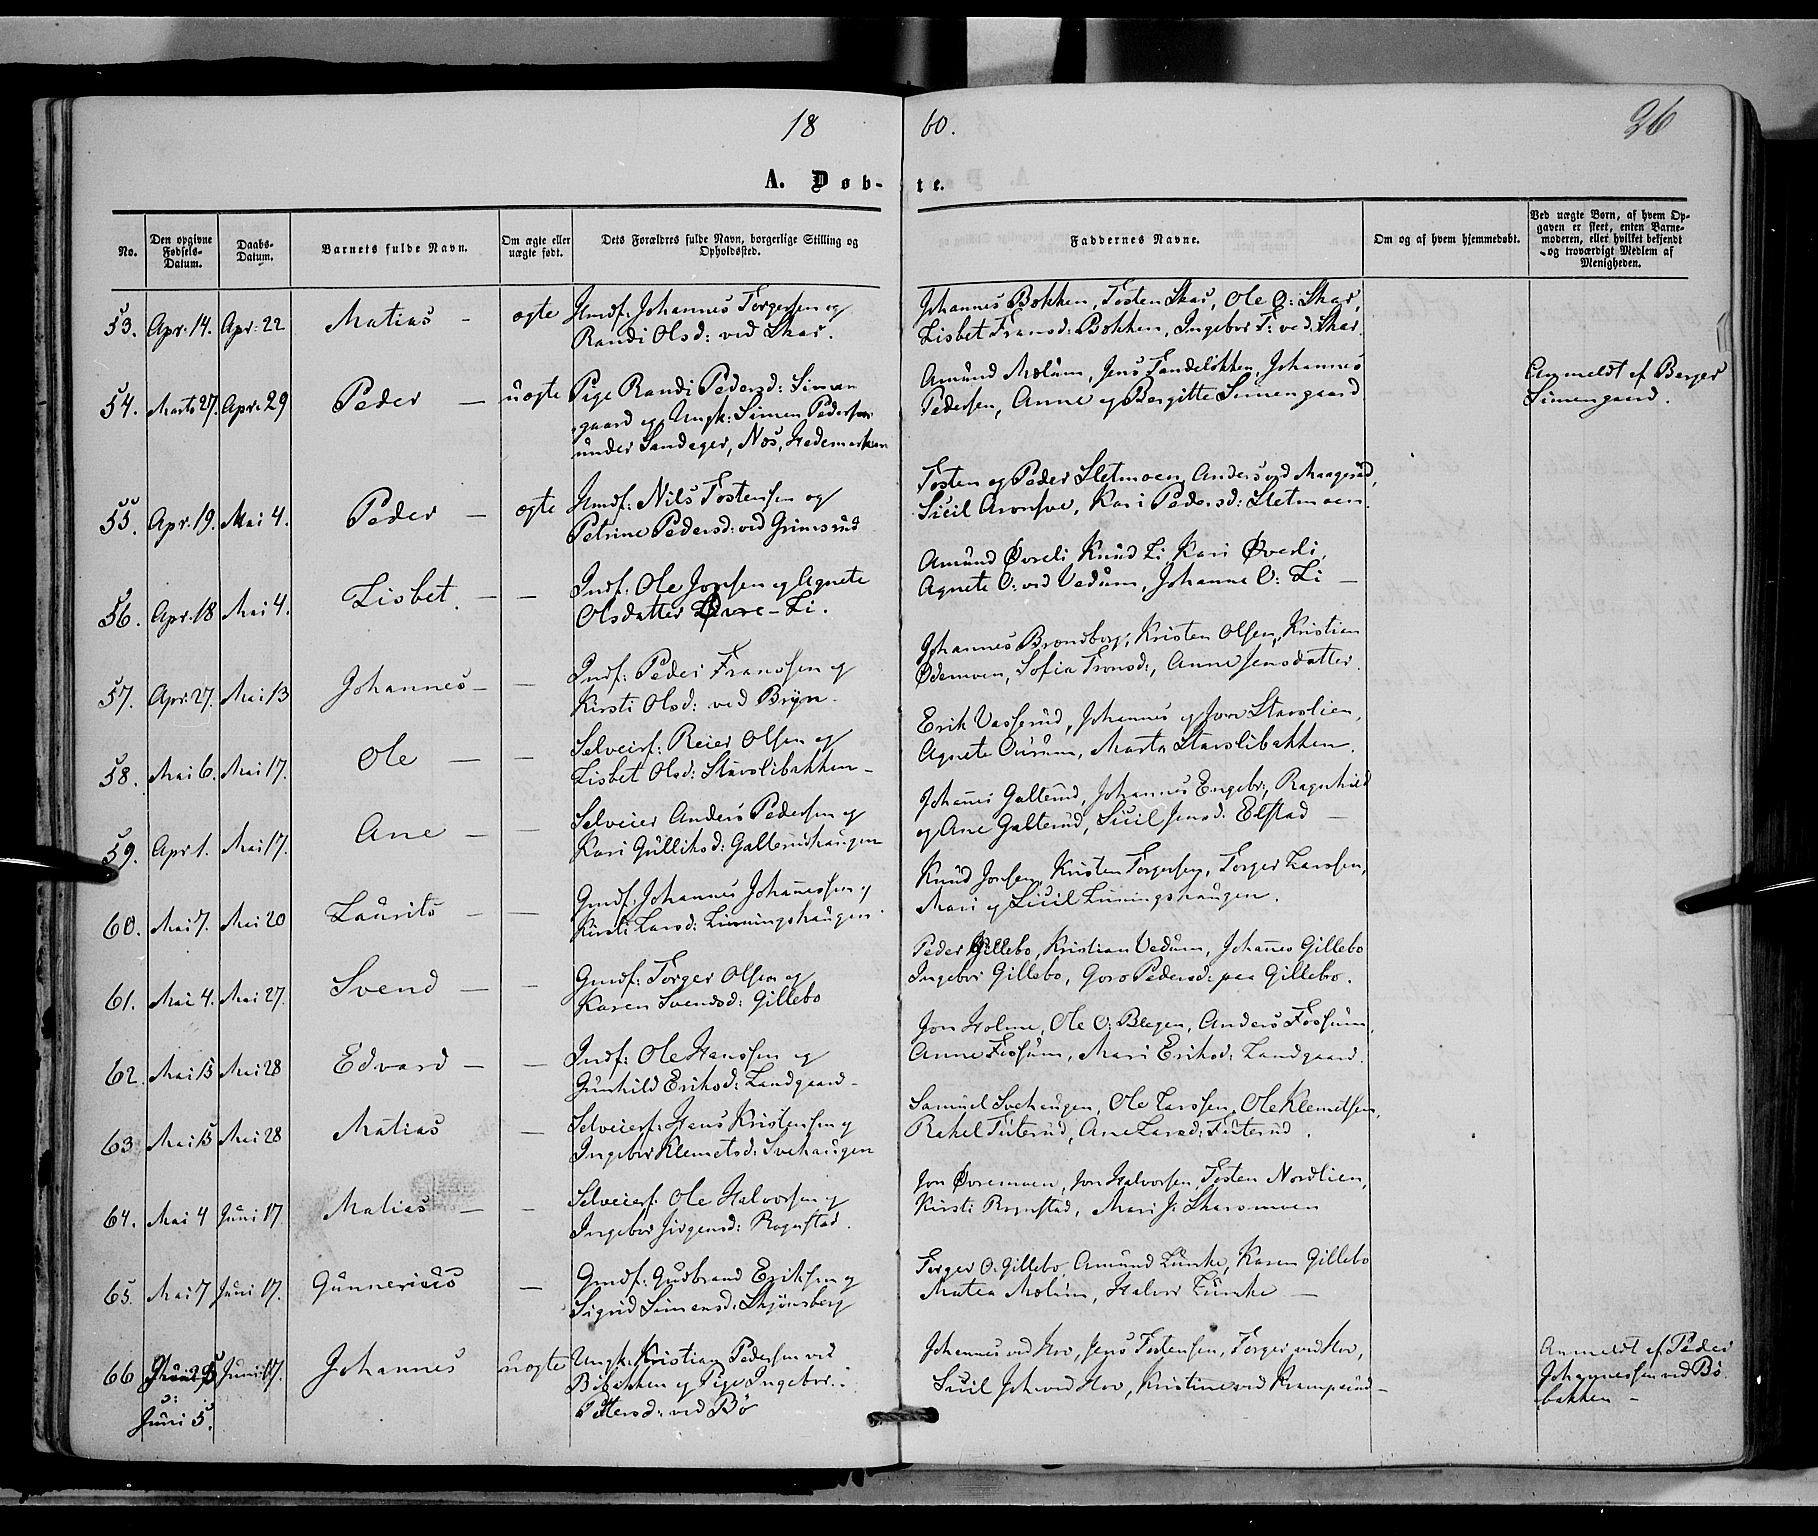 18 60. 26
A. Døb- te.
No. Den opgivne Fødsels-Datum. Daabs-Datum. Barnets fulde Navn. Om ægte eller uægte født. Dets Forældres fulde Navn, borgerlige Stilling og Opholdssted. Faddernes Navne. Om og af hvem hjemmedøbt. Ved uægte Børn, af hvem Opgaven er skeet, enten Barnemoderen, eller hvilket bekjendt og troværdigt Medlem af Menigheden.
53. Apr. 14. Apr: 22 Matias – ægte Hmdf: Johannes Torgersen og
Randi Olsd: ved Skar.
Johannes Bokken, Tosten Skar, Ole O: Skar,
Lisbet Fransd: Bokken, Ingebor T: ved Skar.
54. Marts 27. Apr: 29 Peder – uægte Pige Randi Pedersd: Simen
gaard og Ungk: Simen Pedersen
under Sandager, Næs, Hedemarken
Amund Mælum, Jens Tandeløkken, Johannes
Pedersen, Anne og Bergitte Simengaard
Anmeldt af Berger
Simengaard.
55. Apr. 19. Mai 4. Peder – ægte Hmdf: Nils Tostensen og
Petrine Pedersd: ved Grimsrud
Tosten og Peder Sletmoen, Anders ved Maagerud,
Sicil Aronsve, Kari Pedersd: Sletmoen
56. Apr. 18 Mai 4. Lisbet. – – Indf: Ole Jonsen og Agnete
Olsdatter Øvre-Li.
Amund Øvreli Knud Li Kari Øvreli,
Agnete O: ved Vedum, Johanne O: Li –
57. Apr. 27. Mai 13 Johannes – – Indf: Peder Franssen og
Kirsti Olsd: ved Bryn.
Johannes Brondborg, Kristen Olsen, Kristian
Ødemoen, Sofia Tronsd:, Anne Jensdatter.
58. Mai 6. Mai 17. Ole – – Selveierf: Reier Olsen og
Lisbet Olsd: Stavslibakken –
Erik Vasserud, Johannes og Jon Stavslien,
Agnete Aurum, Marta Stavslibakken.
59. Apr 1. Mai 17. Ane – – Selveier Anders Pedersen og
Kari Gulliksd: Galterudhaugen
Johanes Galterud, Johannes Engebr:, Ragnhild
og Ane Galterud, Sicil Jensd: Elstad –
60. Mai 7. Mai 20 Laurits – – Gmdf: Johannes Johanessen og
Kirsti Larsd: Linningshaugen.
Knud Jonsen, Kristen Torgersen, Torger Larssen,
Mari og Sicil Linningshaugen.
61. Mai 4. Mai 27. Svend – – Gmdf: Torger Olsen og
Karen Svendsd: Gillebo
Peder Gillebo, Kristian Vedum, Johanes Gillebo
Ingebor Gillebo, Goro Pedersd: paa Gillebo.
62. Mai 13 Mai 28 Edvard – – Indf: Ole Hanssen og
Gunhild Eriksd: Landgaard –
Jon Holme, Ole O: Blegen, Anders Fossum,
Anne Fossum, Mari Eriksd: Landgaard.
63. Mai 13 Mai 28 Matias – Selveierf: Hans Kristensen og
Ingebor Klemetsd: Svehaugen
Samuel Svehaugen, Ole Larssen, Ole Klemetsen,
Rakel Futerud, Ane Larsd: Futerud.
64. Mai 4 Juni 17. Matias – – Selveierf: Ole Halvorsen og
Ingebor Jørgensd: Rognstad.
Jon Øvremoen, Jon Halvorsen, Tosten Nordlien,
Kirsti Rognstad, Mari J: Skarsmoen
65. Mai 7 Juni 17. Gunnerius – Gmdf: Gudbrand Eriksen og
Sigrid Simensd: Skjønsberg
Torger O. Gillebo, Amund Lunke, Karen Gillebo
Matea Mælum, Halvor Lunke –
66 Juni 17. Johannes uægte Ungk: Kristian Pedersen ved
Bibakken og Pige Ingebor
Petersd: ved Bø
Juni 5.
Johannes ved Hov, Jens Tostensen, Torger ved Hov,
Sicil Joh: ved Hov, Kristine ved Kramperud –
Anmeldt af Peder
Johannessen ved Bø
bakken –